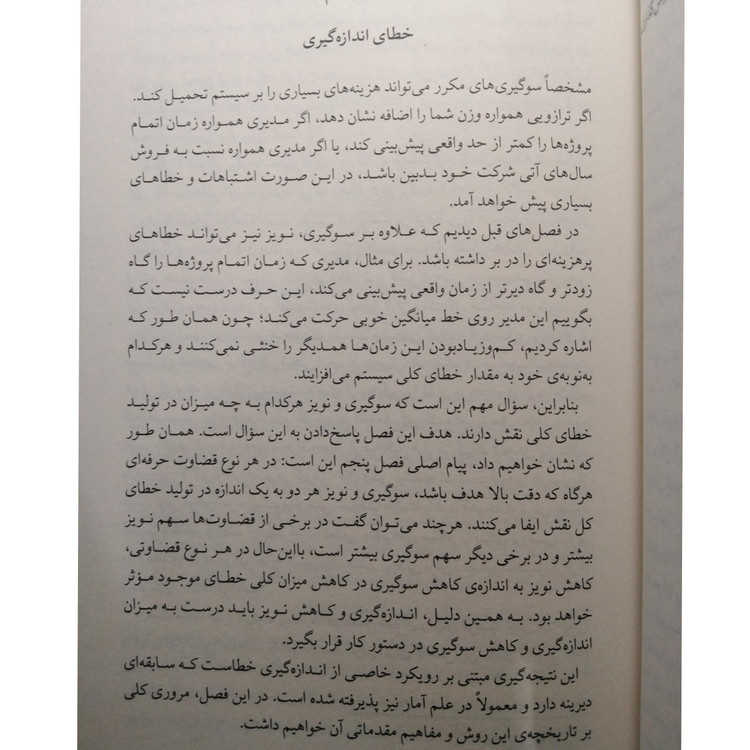 خطای اندازه‌گیری
مشخصاً سوگیری‌های مکرر می‌تواند هزینه‌های بسیاری را بر سیستم تحمیل کند.
اگر ترازویی همواره وزن شما را اضافه نشان دهد، اگر مدیری همواره زمان اتمام
پروژه‌ها را کمتر از حد واقعی پیش‌بینی کند، یا اگر مدیری همواره نسبت به فروش
سال‌های آتی شرکت خود بدبین باشد، در این صورت اشتباهات و خطاهای
بسیاری پیش خواهد آمد.
در فصل‌های قبل دیدیم که علاوه بر سوگیری، نویز نیز می‌تواند خطاهای
پرهزینه‌ای را در بر داشته باشد. برای مثال، مدیری که زمان اتمام پروژه‌ها را گاه
زودتر و گاه دیرتر از زمان واقعی پیش‌بینی می‌کند، این حرف درست نیست که
بگوییم این مدیر روی خط میانگین خوبی حرکت می‌کند؛ چون همان طور که
اشاره کردیم، کم‌وزیادبودن این زمان‌ها همدیگر را خنثی نمی‌کنند و هرکدام
به‌نوبه‌ی خود به مقدار خطای کلی سیستم می‌افزایند.
بنابراین، سؤال مهم این است که سوگیری و نویز هرکدام به چه میزان در تولید
خطای کلی نقش دارند. هدف این فصل پاسخ‌دادن به این سؤال است. همان طور
که نشان خواهیم داد، پیام اصلی فصل پنجم این است: در هر نوع قضاوت حرفه‌ای
هرگاه که دقت بالا هدف باشد، سوگیری و نویز هر دو به یک اندازه در تولید خطای
کل نقش ایفا می‌کنند. هرچند می‌توان گفت در برخی از قضاوت‌ها سهم نویز
بیشتر و در برخی دیگر سهم سوگیری بیشتر است، بااین‌حال در هر نوع قضاوتی،
کاهش نویز به اندازه‌ی کاهش سوگیری در کاهش میزان کلی خطای موجود مؤثر
خواهد بود. به همین دلیل، اندازه‌گیری و کاهش نویز باید درست به میزان
اندازه‌گیری و کاهش سوگیری در دستور کار قرار بگیرد.
این نتیجه‌گیری مبتنی بر رویکرد خاصی از اندازه‌گیری خطاست که سابقه‌ای
دیرینه دارد و معمولاً در علم آمار نیز پذیرفته شده است. در این فصل، مروری کلی
بر تاریخچه‌ی این روش و مفاهیم مقدماتی آن خواهیم داشت.